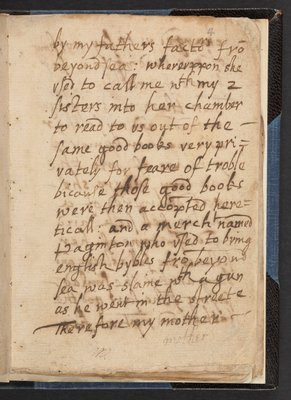 by my fathers factor fro
beyond sea: whereuppon she
used to call me wth my 2
sisters into her chamber
to read to us out of the
same good books very pri=
vately for feare of troble
bicause those good books
were then accopted here=
ticall and a merch named
Paginton who used to bring
english bybles fro beyon
sea was slaine wth a gun
as he went in the streete
Therefore my mother
mother